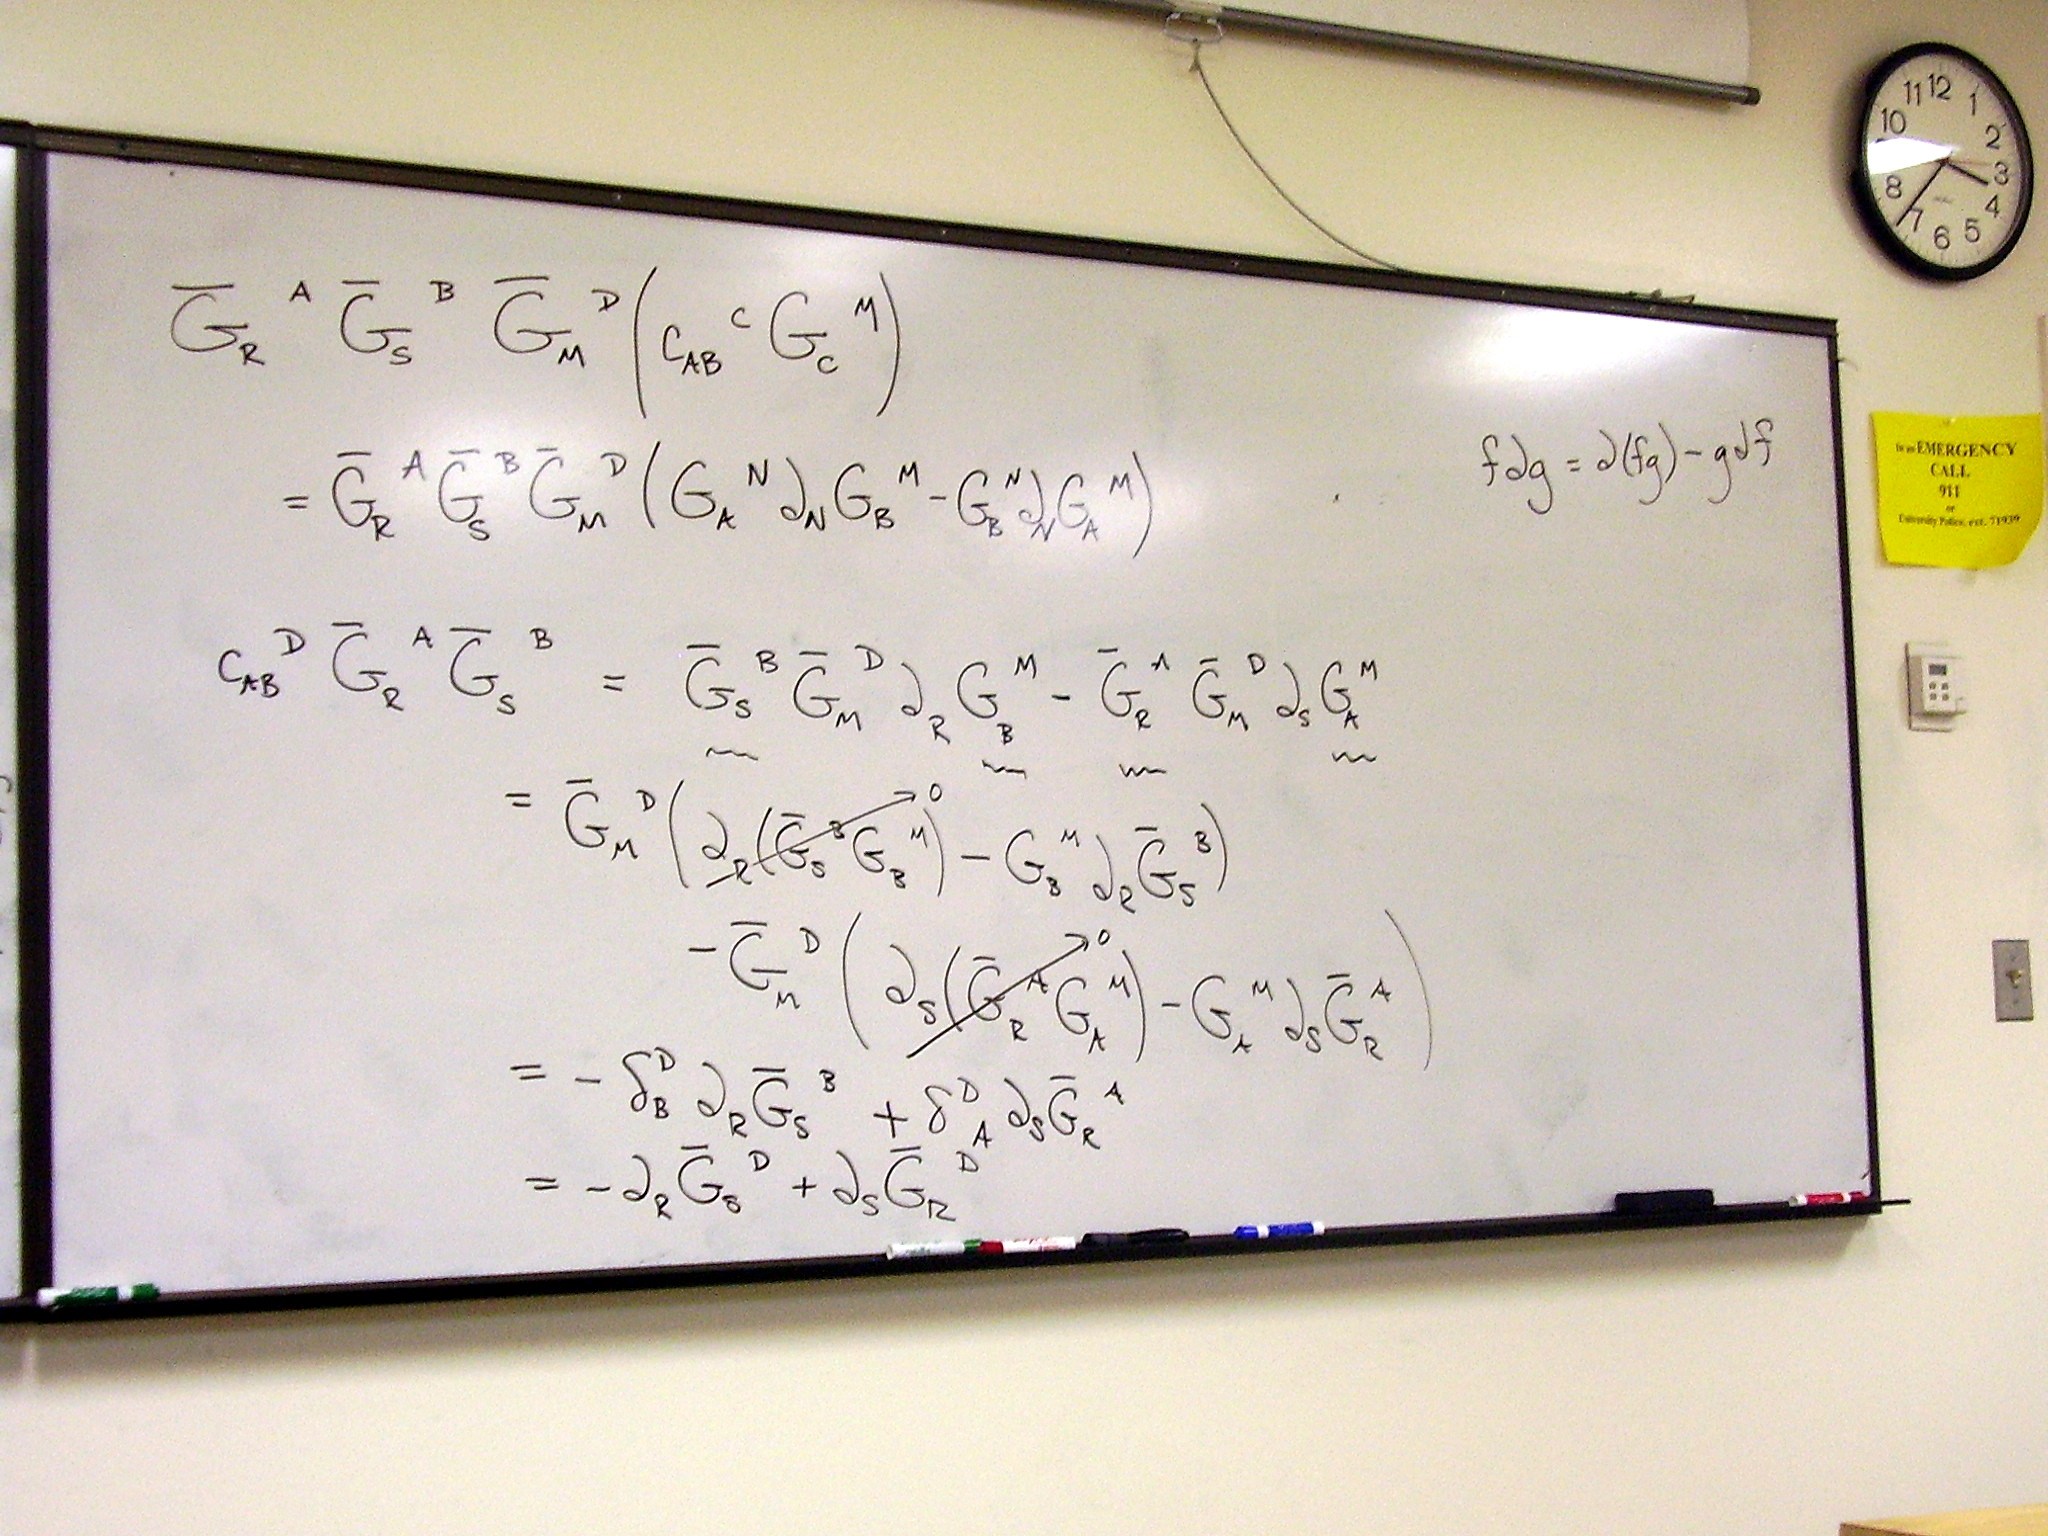 G̅_R^A G̅_S^B G̅_M^D (C_AB^C G_C^M)
= G̅_R^A G̅_S^B G̅_M^D (G_A^N ∂_N G_B^M - G_B^N ∂_N G_A^M)
f∂g = ∂(fg) - g∂f
C_AB^D G̅_R^A G̅_S^B = G̅_S^B G̅_M^D ∂_R G_B^M - G̅_R^A G̅_M^D ∂_S G_A^M
= G̅_M^D (∂_R(G̅_S^B G_B^M) → 0 - G_B^M ∂_R G̅_S^B)
- G̅_M^D (∂_S(G̅_R^A G_A^M) → 0 - G_A^M ∂_S G̅_R^A)
= - δ_B^D ∂_R G̅_S^B + δ_A^D ∂_S G̅_R^A
= - ∂_R G̅_S^D + ∂_S G̅_R^D
11 12 1
10 2
3
8 4
7 6 5
In an EMERGENCY
CALL
911
or
University Police, ext. 71939